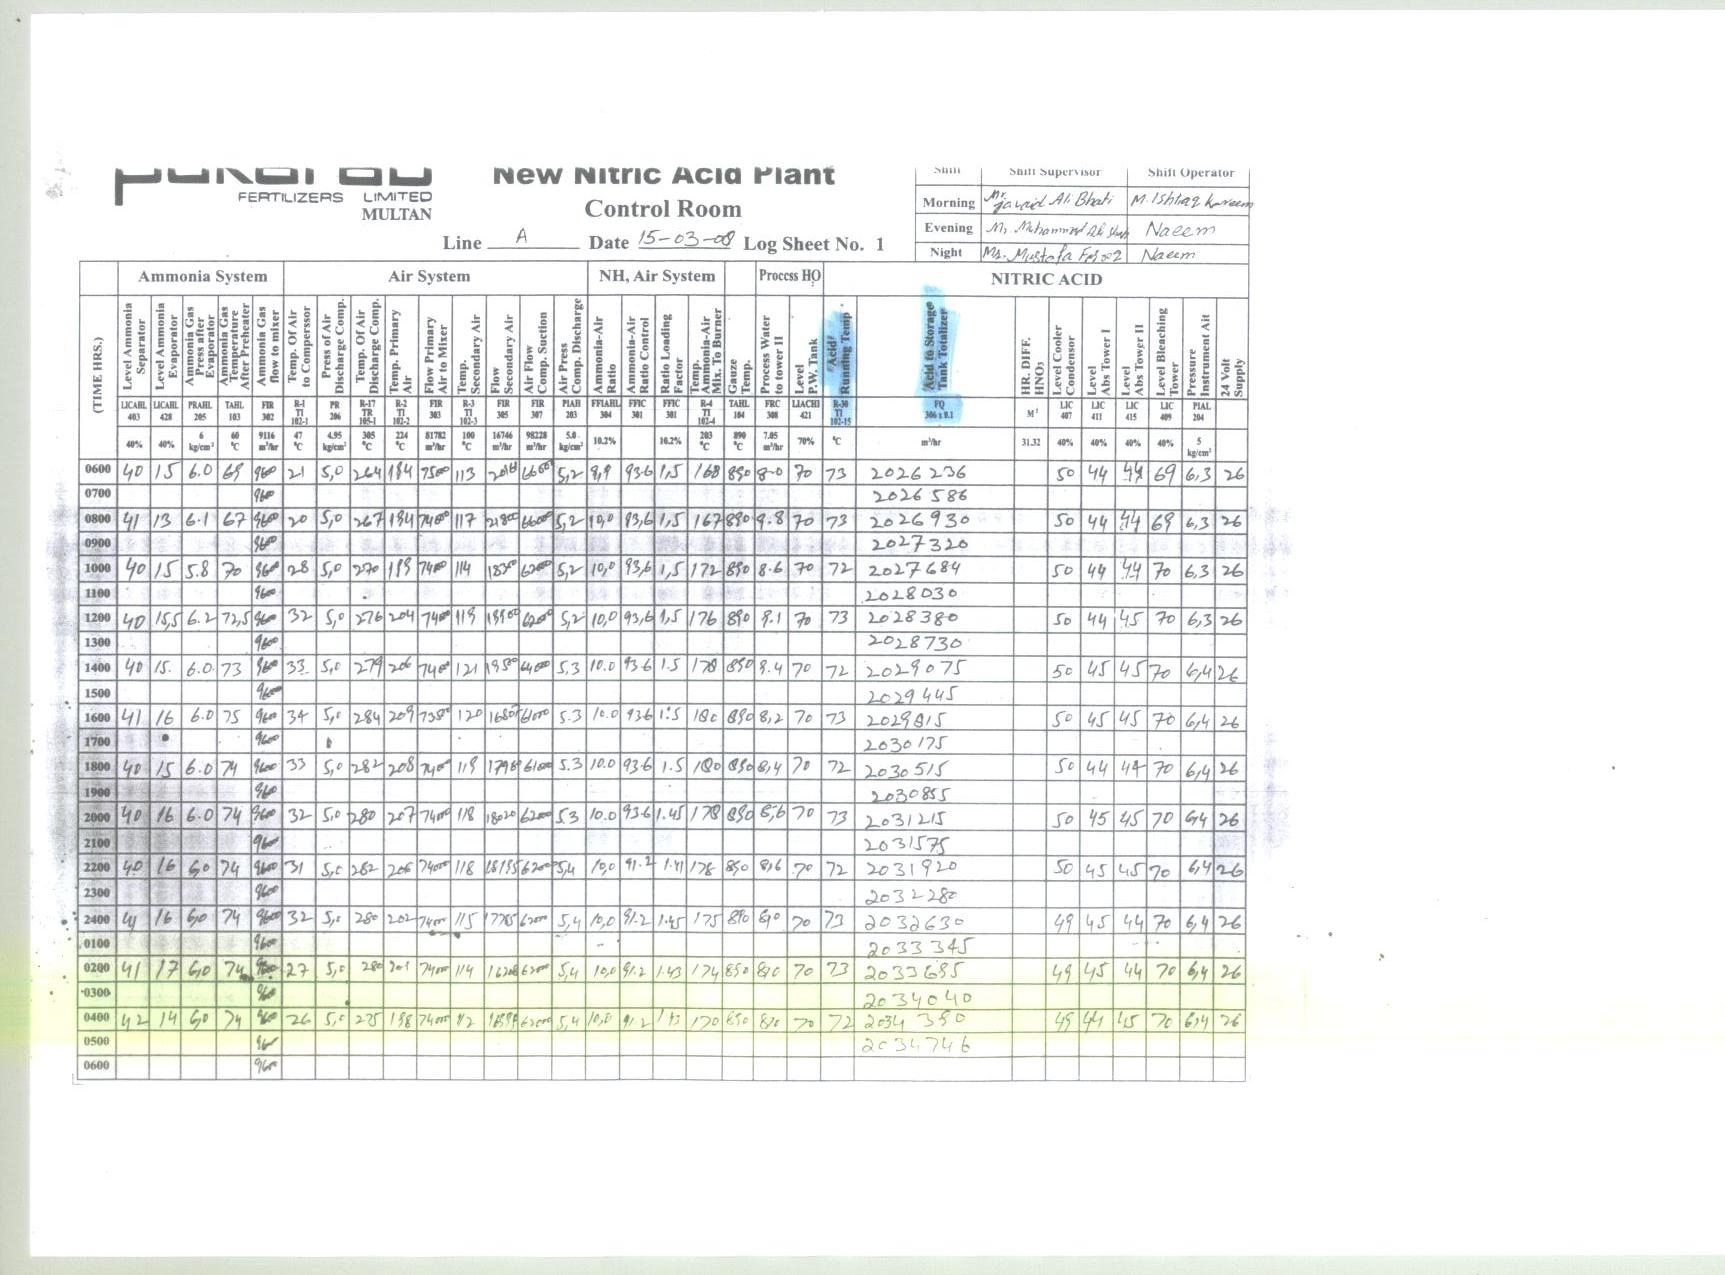 FERTILIZERS LIMITED
MULTAN
New Nitric Acid Plant
Control Room
Line A Date 15-03-08 Log Sheet No. 1
Shift Shift Supervisor Shift Operator
Morning Mr. Javaid Ali Bhati M. Ishtiaq Kareem
Evening Naeem
Night Naeem
Ammonia System Air System NH, Air System Process HO NITRIC ACID
(TIME HRS.)
Level Ammonia Separator
Level Ammonia Evaporator
Ammonia Gas Press after Evaporator
Ammonia Gas Temperature After Preheater
Ammonia Gas flow to mixer
Temp. Of Air to Comperssor
Press of Air Discharge Comp.
Temp. Of Air Discharge Comp.
Temp. Primary Air
Flow Primary Air to Mixer
Temp. Secondary Air
Flow Secondary Air
Air Flow Comp. Suction
Air Press Comp. Discharge
Ammonia-Air Ratio
Ammonia-Air Ratio Control
Ratio Loading Factor
Temp. Ammonia-Air Mix. To Burner
Gauze Temp.
Process Water to tower II
Level P.W. Tank
Acid Running Temp.
Acid to Storage Tank Totalizer
HR. DIFF. HNO3
Level Cooler Condensor
Level Abs Tower I
Level Abs Tower II
Level Bleaching Tower
Pressure Instrument Ait
24 Volt Supply
LICAHL 403 LICAHL 428 PRAHL 205 TAHL 103 FIR 302 R-1 TI 102-1 PR 206 R-17 TR 105-1 R-2 TI 102-2 FIR 303 R-3 TI 102-3 FIR 305 FIR 307 PIAH 203 FFIAHL 304 FFIC 301 FFIC 301 R-4 TI 102-4 TAHL 104 FRC 308 LIACHI 421 R-30 TI 102-15 FQ 306 x 0.1 M³ LIC 407 LIC 411 LIC 415 LIC 409 PIAL 204
40% 40% 6 kg/cm² 60 °C 9116 m³/hr 47 °C 4.95 kg/cm² 305 °C 224 °C 81782 m³/hr 100 °C 16746 m³/hr 98228 m³/hr 5.0 kg/cm² 10.2% 10.2% 203 °C 890 °C 7.05 m³/hr 70% °C m³/hr 31.32 40% 40% 40% 40% 5 kg/cm²
0600 40 15 6.0 69 9600 21 5,0 264 194 113 5,2 9,9 93.6 1,5 168 890 8.0 70 73 2026236 50 44 44 69 6,3 26
0700 9600 2026586
0800 41 13 6.1 67 9600 20 5,0 267 194 117 5,2 10,0 93,6 1,5 167 890 9.8 70 73 2026930 50 44 44 69 6,3 26
0900 9600 2027320
1000 40 15 5.8 70 9600 28 5,0 270 199 114 5,2 10,0 93,6 1,5 172 890 8.6 70 72 2027684 50 44 44 70 6,3 26
1100 9600 2028030
1200 40 15,5 6.2 72,5 9600 32 5,0 276 204 119 5,2 10,0 93,6 1,5 176 890 9.1 70 73 2028380 50 44 45 70 6,3 26
1300 9600 2028730
1400 40 15. 6.0 73 9600 33 5,0 279 206 121 5.3 10.0 93.6 1.5 178 890 9.4 70 72 2029075 50 45 45 70 6,4 26
1500 9600 2029445
1600 41 16 6.0 75 9600 34 5,0 284 209 120 5.3 10.0 93.6 1.5 180 890 8,2 70 73 2029815 50 45 45 70 6,4 26
1700 9600 2030175
1800 40 15 6.0 74 9600 33 5,0 282 208 119 5.3 10.0 93.6 1.5 180 890 8,4 70 72 2030515 50 44 44 70 6,4 26
1900 9600 2030855
2000 40 16 6.0 74 9600 32 5,0 280 207 118 5.3 10.0 93.6 1.45 178 890 8,6 70 73 2031215 50 45 45 70 6,4 26
2100 9600 2031575
2200 40 16 6,0 74 9600 31 5,0 282 206 118 5,4 10,0 91.2 1.41 178 890 70 72 2031920 50 45 45 70 6,4 26
2300 9600 2032280
2400 41 16 6,0 74 9600 32 5,0 280 202 115 5,4 10,0 91.2 1.45 175 890 70 73 2032630 49 45 44 70 6,4 26
0100 9600 2033345
0200 41 17 6,0 74 9600 27 5,0 280 201 114 5,4 10,0 91.2 1.43 174 890 70 73 2033695 49 45 44 70 6,4 26
0300 960 2034040
0400 42 14 6,0 74 9600 26 5,0 275 198 112 5,4 10,0 91.2 170 890 70 72 2034390 49 44 45 70 6,4 26
0500 2034746
0600 9600